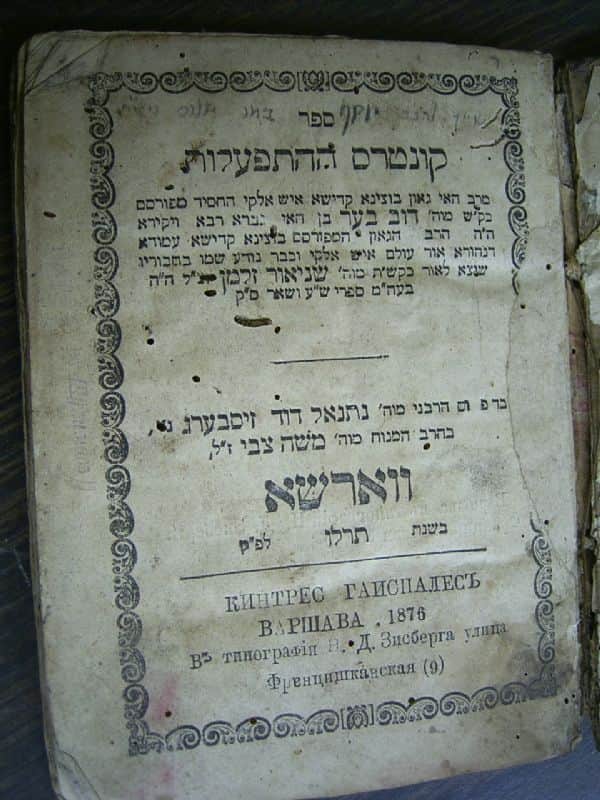 ספר
קונטרס ההתפעלות
מרב האי גאון בוצינא קדישא איש אלקי החסיד מפורסם
בק״ש מוה׳ דוב בער בן האי גברא רבא ויקירא
ה״ה הרב הגאון המפורסם בוצינא קדישא עמודא
דנהורא אור עולם איש אלקי וכבר נודע שמו בחבוריו
שנצא לאור בקש״ת מוה׳ שניאור זלמן זצ״ל ה״ה
בעה״מ ספרי ש״ע ושאר ס״ק
בדפוס הרבני מוה׳ נתנאל דוד זיסבערג ני׳,
בהרב המנוח מוה׳ משה צבי ז״ל,
ווארשא
בשנת תרלו לפ״ק
КИНТРЕС ГАИСПАЛЕСЪ
ВАРШАВА . 1876
Въ типографіи Н. Д. Зисберга улица
Францишканская (9)